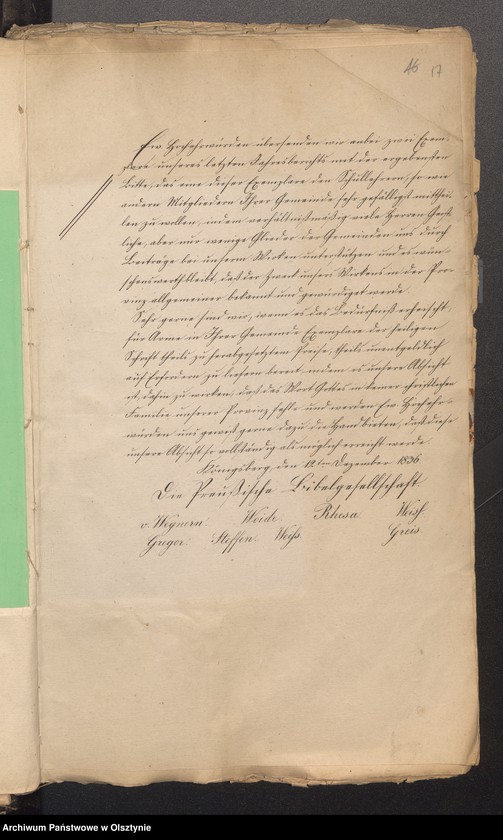 46 17
Ew. Hochehrwürden übersenden wir anbei zwei Exem-
plare unseres letzten Jahresberichts mit der ergebensten
Bitte, das eine dieser Exemplare den Schullehrern, so wie
andern Mitgliedern Ihrer Gemeinde sehr gefälligst mitthei-
len zu wollen, indem verhältnißmäßig viele Herren Geist-
liche, aber nur wenige Glieder der Gemeinden uns durch
Beiträge bei unserm Wirken unterstützen und es wün-
schenswerth bleibt, daß der Zweck unsers Wirkens in der Pro-
vinz allgemeiner bekannt und gewürdiget werde.
Sehr gerne sind wir, wenn es das Bedürfniß erheischt,
für Arme in Ihrer Gemeinde Exemplare der heiligen
Schrift theils zu herabgesetztem Preise, theils unentgeldlich
auf Erfordern zu liefern bereit, indem es unsere Absicht
ist, dahin zu wirken, daß das Wort Gottes in keiner christlichen
Familie unserer Provinz fehle und werden Ew. Hochehr-
würden uns gewiß gerne dazu die Hand bieten, daß diese
unsere Absicht so vollständig als möglich erreicht werde.
Königsberg, den 12ten Dezember 1836
Die Preußische Bibelgesellschaft
v. Wegnern. Weide. Rhesa. Weiß.
Gregor. Steffen. Weiß. Greis.
Archiwum Państwowe w Olsztynie